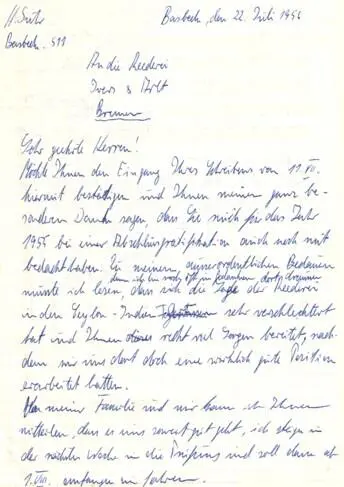 H. Suhr
Basbeck, den 22. Juli 1956
Basbeck 511
An die Reederei
Ivers & Arlt
Bremen
Sehr geehrte Herren!
Möchte Ihnen den Eingang Ihres Schreibens vom 11. VII.
hiermit bestätigen und Ihnen meinen ganz be-
sonderen Dank sagen, das Sie mich für das Jahr
1955 bei einer Abschlussgratifikation auch noch mit
bedacht haben. Zu meinem ausserordentlichen Bedauern
denn ich bin noch oft in Gedanken dort draussen
musste ich lesen, dass sich die Lage der Reederei
in den Ceylon-Indien sehr verschlechtert
hat und Ihnen dieses recht viel Sorgen bereitet, nach-
dem wir uns dort doch eine wirklich gute Position
erarbeitet hatten.
Von meiner Familie und mir kann ich Ihnen
mitteilen, das es uns soweit gut geht, ich steige in
der nächsten Woche in die Prüfung und soll dann ab
1. VIII. anfangen zu fahren.